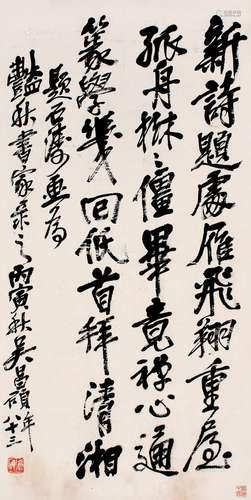 新詩題處雁飛翔重
孤舟僵畢竟禪心通
篆學幾回低首拜清湘
題石濤畫
豔秋書家之丙寅秋吳昌碩年八十三